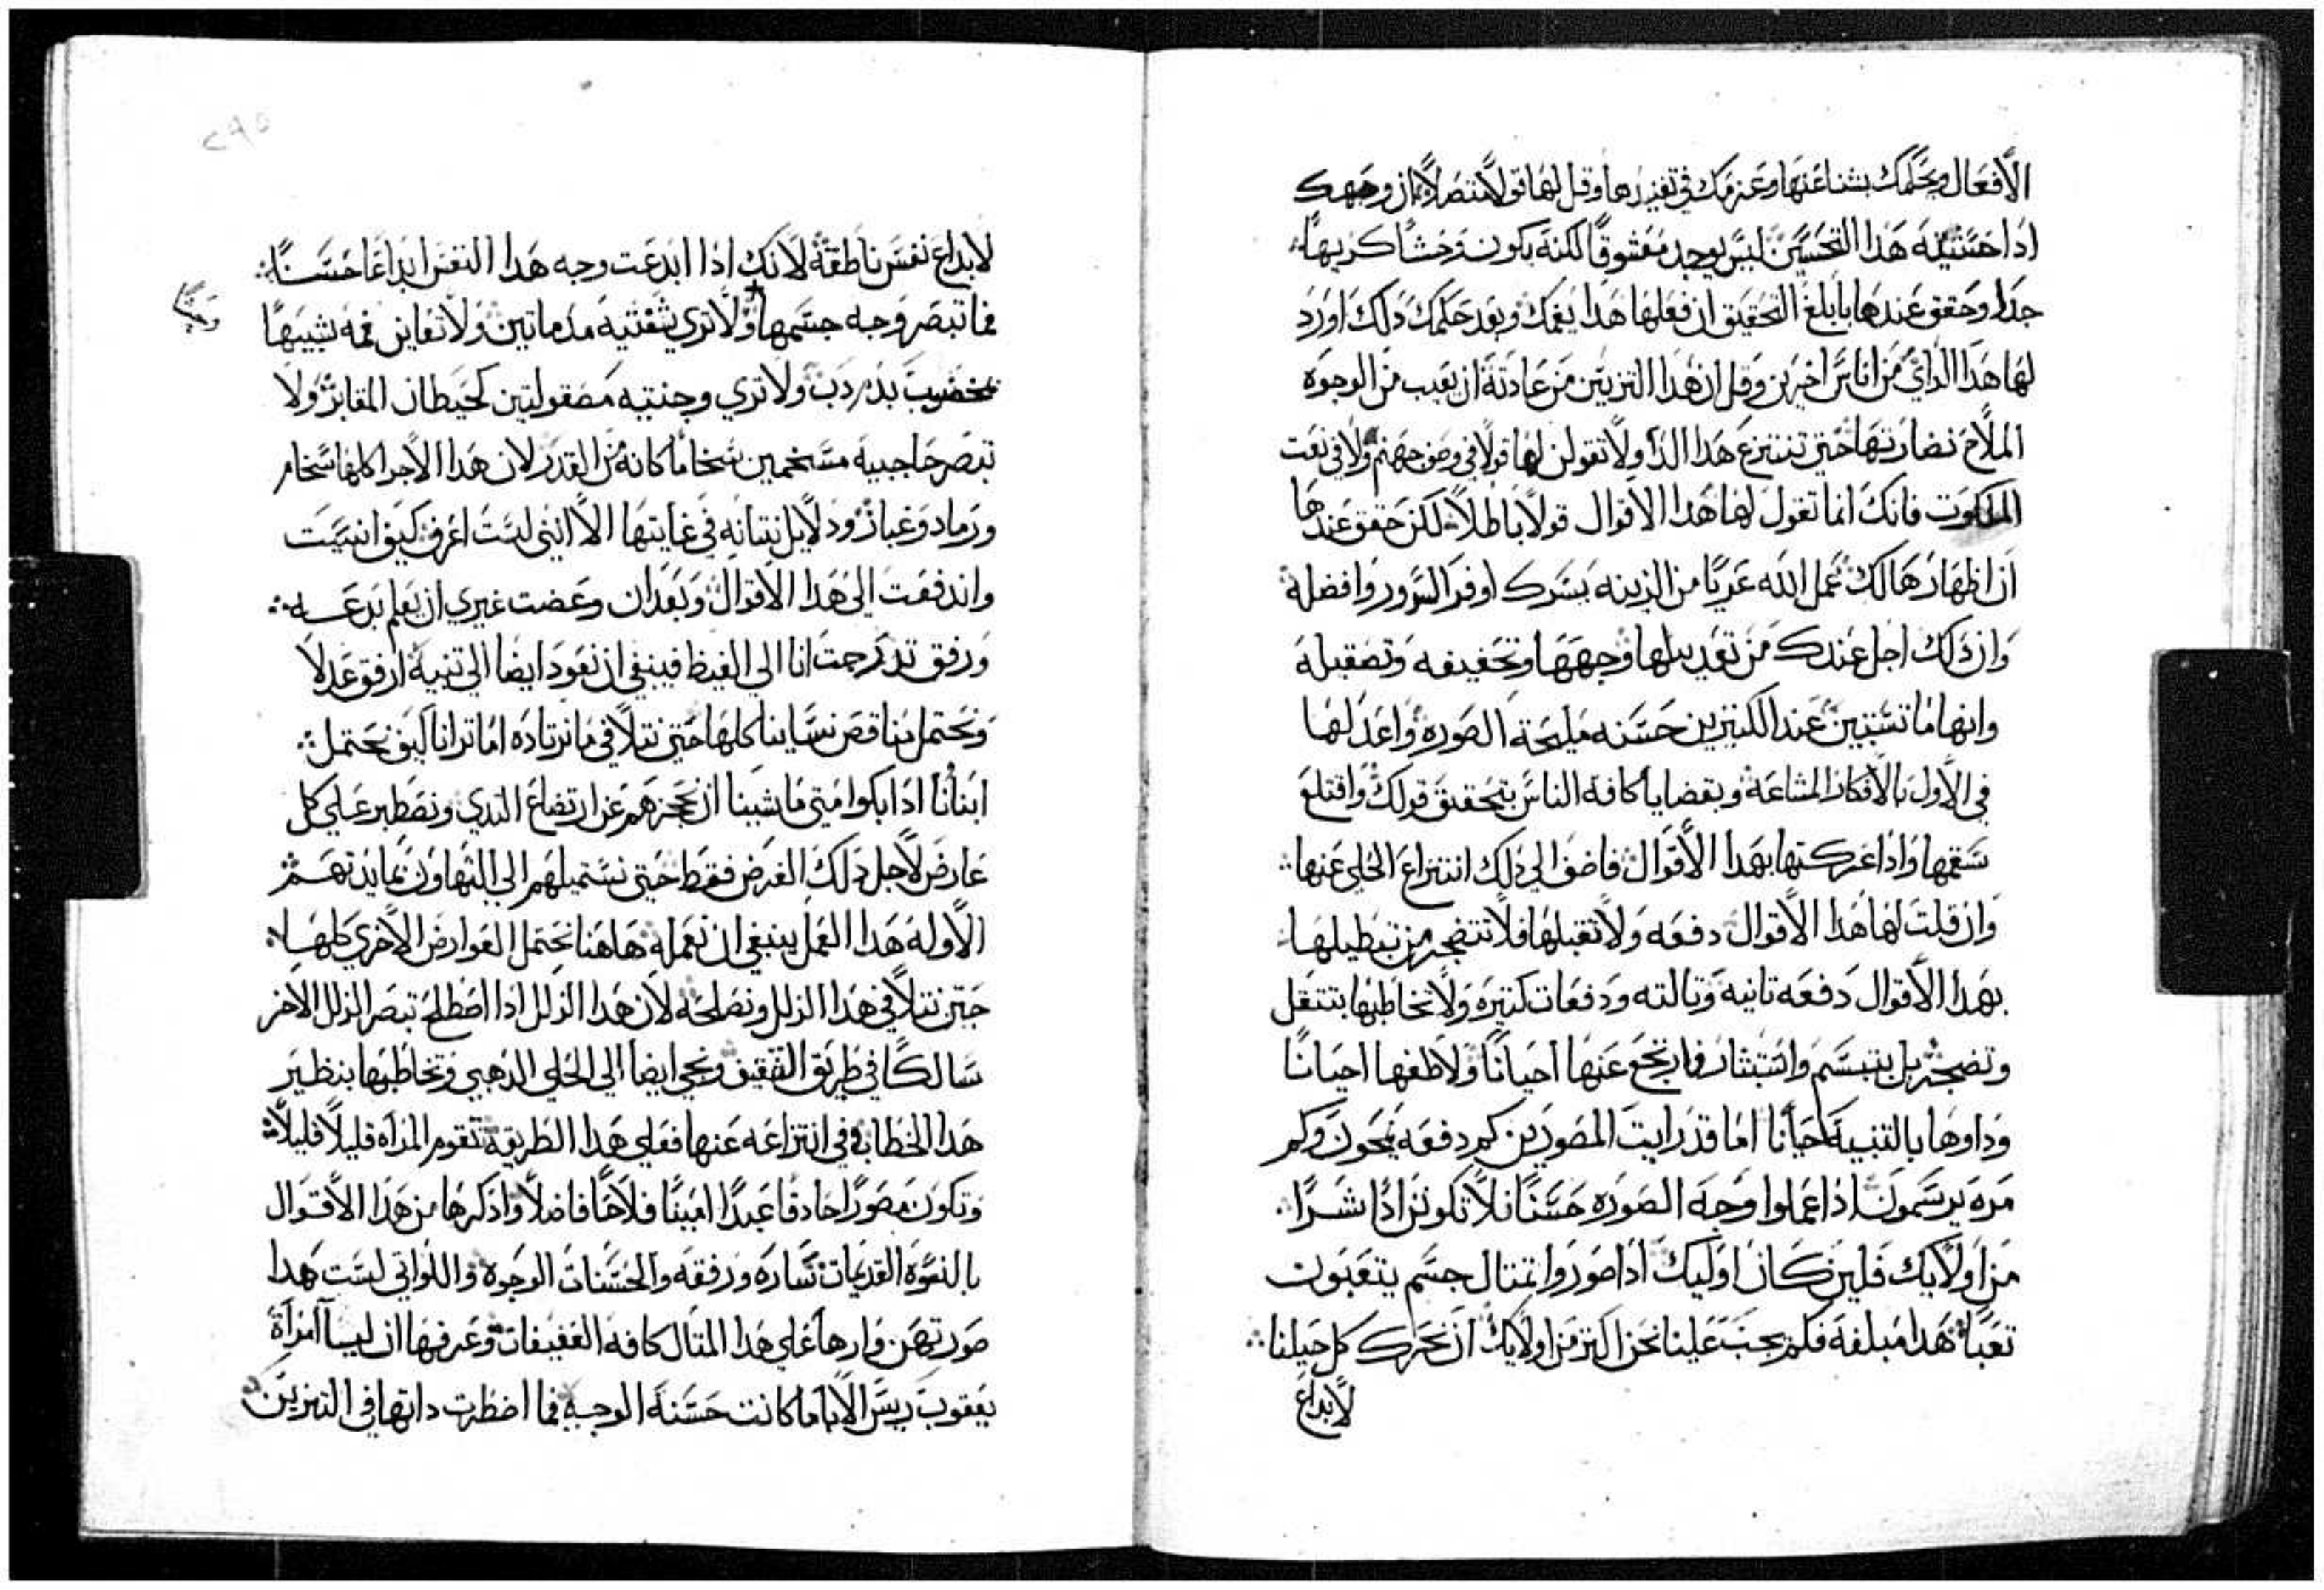 الأفعال وتحكمك بشناعتها وعزمك في تغييرها وقل لها قولاً متصلاً بان وجهك
اذا حسنتيه هذا التحسين ليس يوجد معشوقاً لكنه يكون وحشاً كريهاً
جدا وحقق عندها بابلغ التحقيق ان فعلها هذا يغمك وبعد حكمك ذلك اورد
لها هذا الراي من اناس اخرين وقل ان هذا التزيين من عادته ان يعيب من الوجوه
الملاح نضارتها حتى تنتزع هذا الدا ولا تقولن لها قولاً في وصف جهنم ولا في نعت
الملكوت فانك انما تقول لها هذا الاقوال قولاً باطلاً لكن حقق عندها
ان اظهارها لك عمل الله عريا من الزينه يسرك اوفر السرور وافضله
وان ذلك اجل عندك من تعديبها وجهها وتحفيفه وتصقيله
وانها ما تستبين عند الكثيرين حسنه مليحة الصوره واعد لها
في الاول بالافكار المشاعه وبقضايا كافة الناس بتحقيق قولك واقتلع
سقمها واذا عركتها بهذا الأقوال فاضف الى ذلك انتزاع الحلي عنها
وان قلت لها هذا الاقوال دفعه ولا تقبلها فلا تتضجر من تبطيلها
بهذا الأقوال دفعه ثانيه وثالثه ودفعات كثيره ولا تخاطبها بتثقل
وتضجر بل بتبسم واستبشار فارتجع عنها احيانًا ولاطفها احيانًا
وداوها بالتنبيه احيانًا اما قد رايت المصورين كم دفعه يمحون وكم
مره يرسمون اذا عملوا وجه الصوره حسنًا فلا تكونن اذًا اشرًا
من اولايك فلين كان اوليك اذا صوروا تمثال جسم يتعبون
تعبًا هذا مبلغه فكم يجب علينا نحن اكثر من اولايك ان نحرك كل حيلنا
لابداع
٢٩٥
لابداع نفس ناطقة لانك اذا ابدعت وجه هذا النفس ابداعًا حسنًا
فما تبصر وجه جسمها ولا ترى شفتيه مدماتين ولا تعاين فمه شبيهًا
بخضيب بدم دب ولا ترى وجنتيه مصقولتين كحيطان المقابر ولا
تبصر حاجبيه مسخمين سخاما كانه من القدر لان هذا الاجرا كلها سخام
ورماد وغبار ودلايل نتانه في غايتها الا انني لست اعرف كيف انسيت
واندفعت الى هذا الاقوال وبعد ان وعضت غيري ان يعلم بدعه
ورفق تدرجت انا الى الغيظ فينبغي ان نعود ايضا الى تنبيه ارفق عدلا
ونحتمل مناقص نساينا كلها حتى نتلافى ما نرتاده اما ترانا كيف نحتمل
ابنانا اذا بكوا متى ما شينا ان نحجزهم عن ارتضاع الثدي ونصطبر على كل
عارض لاجل ذلك الغرض فقط حتى نستميلهم الى التهاون بمايدتهم
الأوله هذا العمل ينبغي ان نعمله هاهنا نحتمل العوارض الاخرى كلها
حتى نتلافى هذا الزلل ونصلحه لان هذا الزلل اذا اصطلح تبصر الزلل الاخر
سالكًا في طريق التثقيف وتجي ايضا الى الحلي الذهبي وتخاطبها بنظير
هذا الخطاب في انتزاعه عنها فعلى هذا الطريقه تقوم المراه قليلاً قليلاً
وتكون مصورًا حادقًا عبدًا امينًا فلاحًا فاضلاً واذكرها من هذا الاقوال
بالنسوه القديمات ساره ورفقه والحسنات الوجوه واللواتي لست هذا
صورتهن وارها على هذا المثال كافه العفيفات وعرفها ان ليسا امراة
يعقوب ريس الابا ما كانت حسنة الوجه فما اضطرت داتها في التزيين